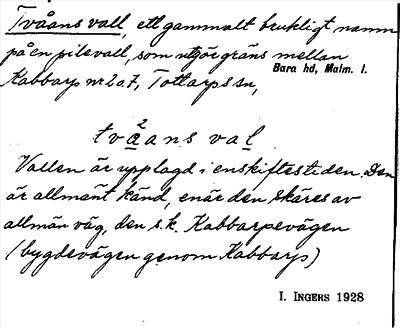 Tvåans vall, ett gammalt brukligt namn
på en pilevall, som utgör gräns mellan
Bara hd, Malm. l.
Kabbarp nr 2 o. 7, Tottarps sn,
två²ans val
Vallen är upplagd i enskiftestiden. Den
är allmänt känd, enär den skäres av
allmän väg, den s.k. Kabbarpevägen
(bygdevägen genom Kabbarp)
I. INGERS 1928